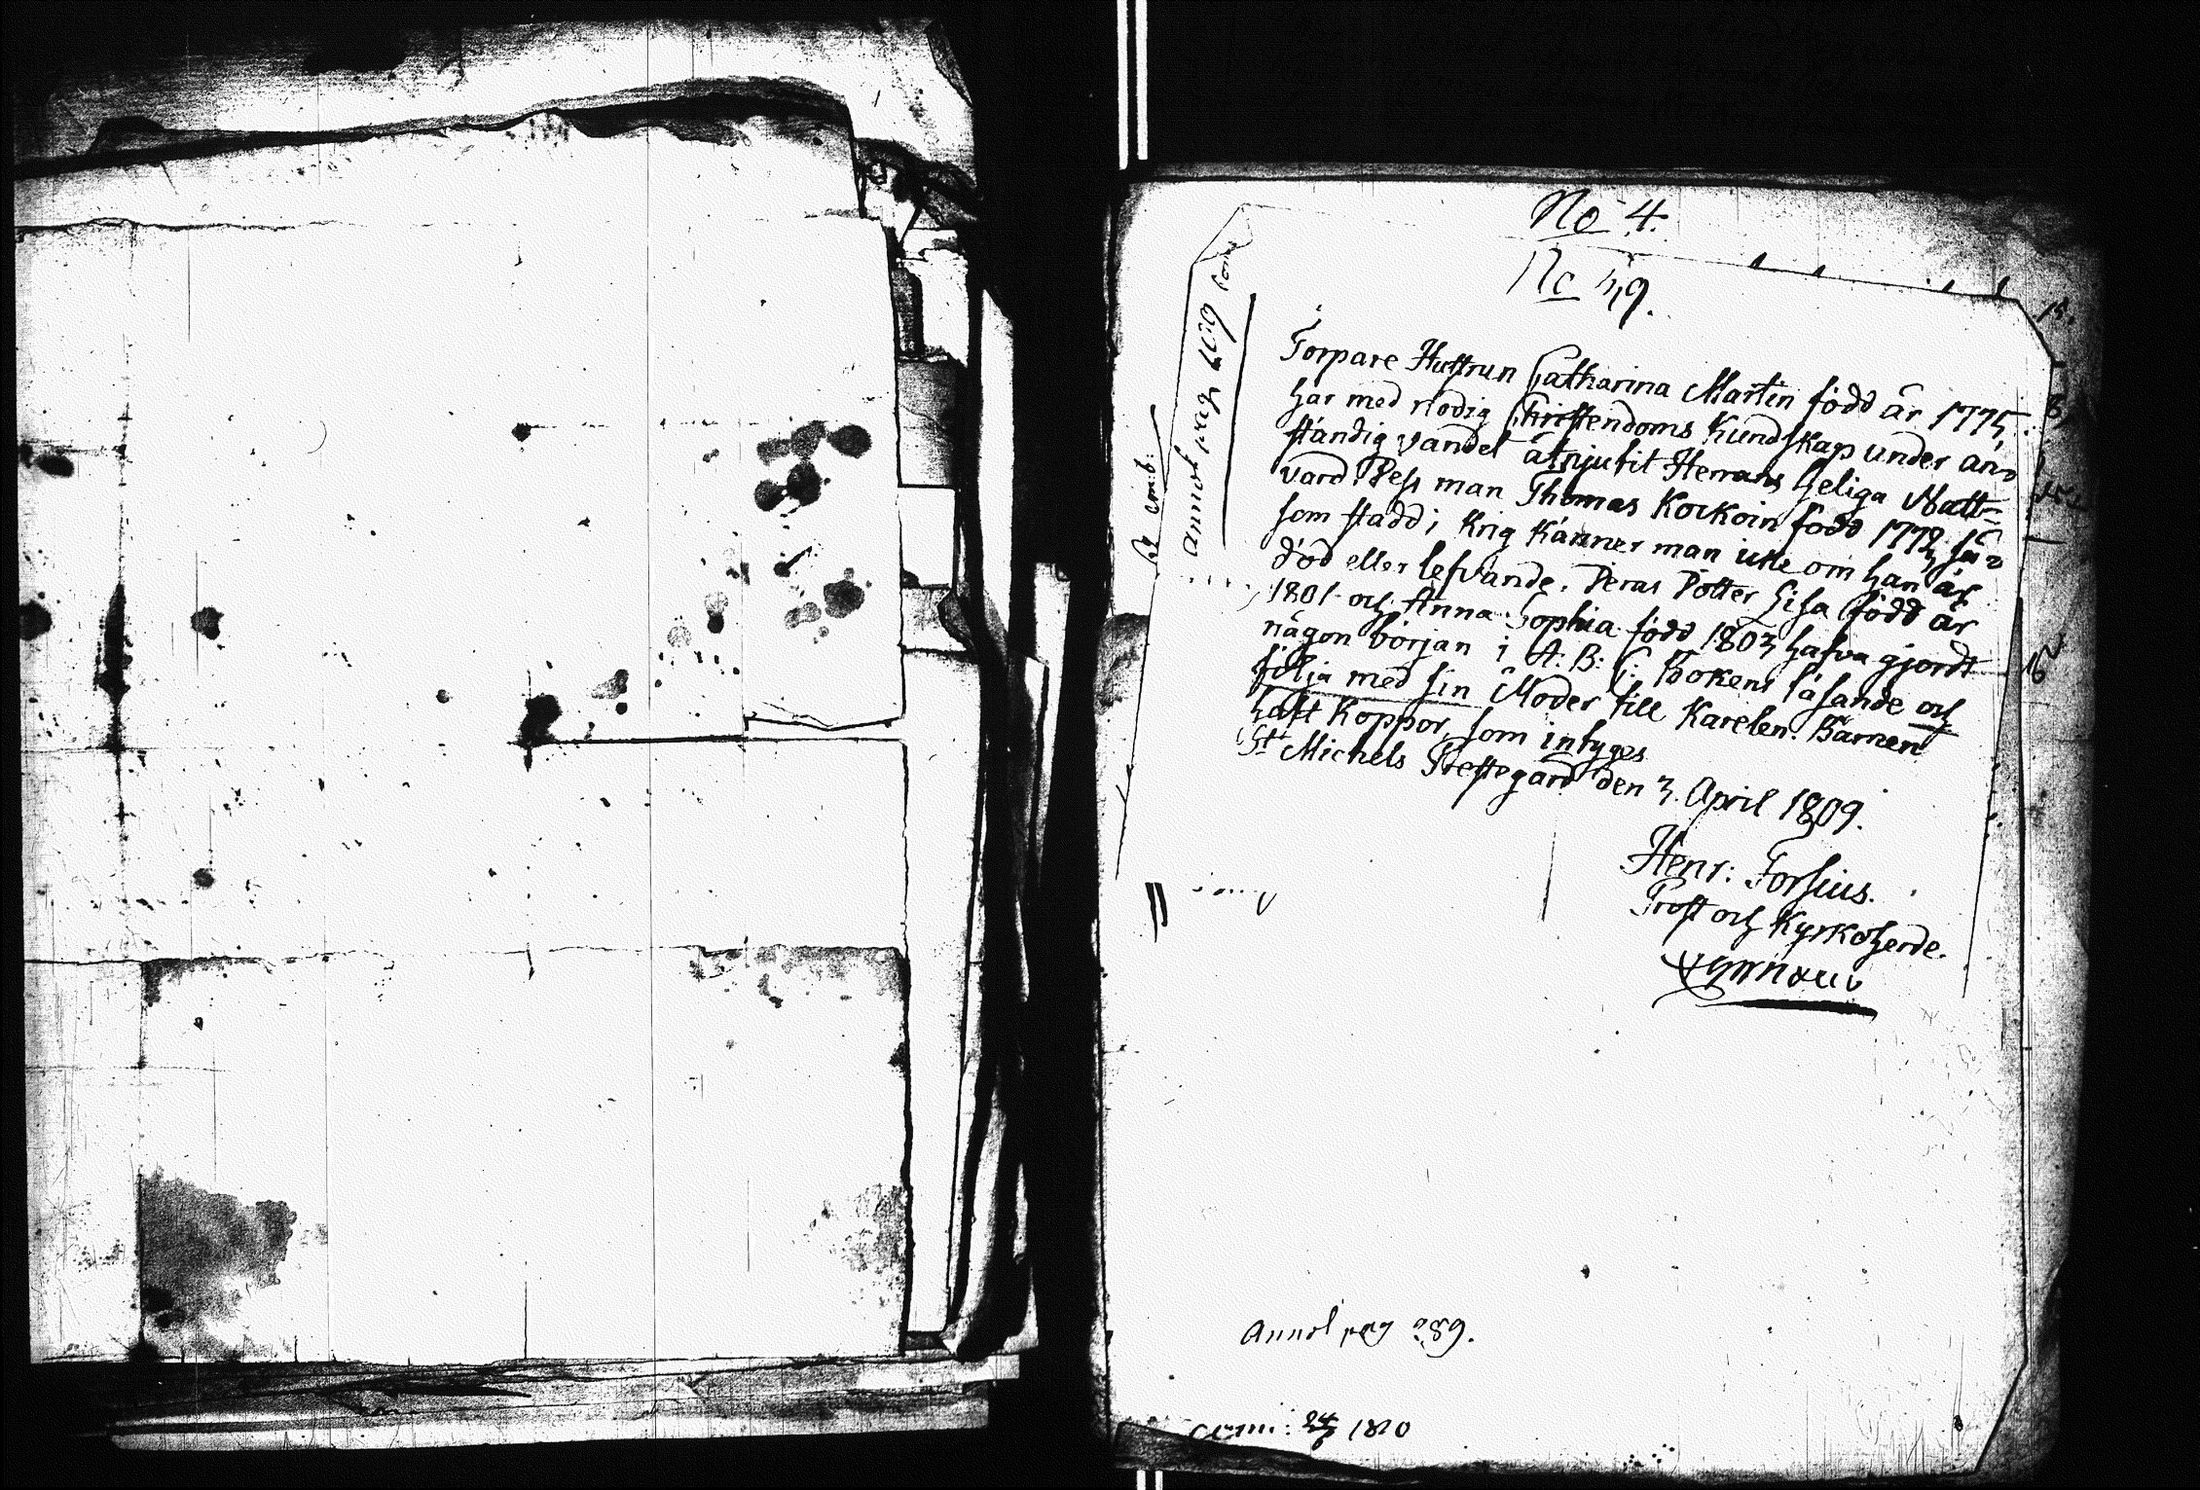 No 4.
No 49.
Torpare Hustrun Catharina Martin född år 1775.
har med nödig Christendoms Kundskap under an=
ständig vandel åtnjutit Herrans heliga Natt=
vard. Dess man Thomas Korkoin född 1773, så=
som stadd i Krig känner man icke om han är
död eller lefvande. Deras Dötter Lisa född år
1801 och Anna Sophia född 1803 hafva gjordt
någon början i A: B: C: Bokens läsande och
följa med sin Moder till Karelen. Barnen
haft Koppor, som intyges
St Michels Prestegård den 3. April 1809.
Henr: Forsius.
Prost och Kyrkoherde.
Annot pag 289.
24 1810
Annot pag